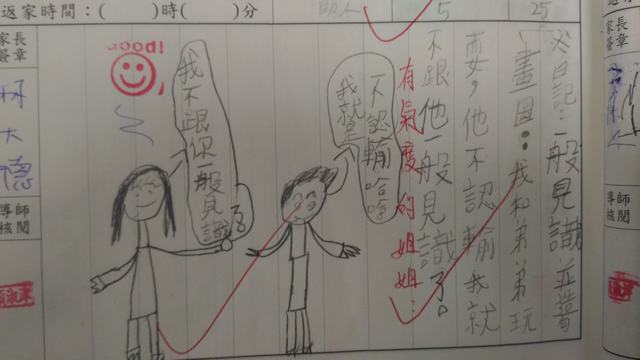 返家時間：(　　)時(　　)分
助人
5
25
家長
簽章
導師
核閱
父日記：一般見識 並替
畫圖：我和弟弟玩
耍，他不認輸我就
不跟他一般見識了。
有氣度的姐姐：
不認輸哈哈
我就是
我不跟你一般見識
了
Good!
林大德